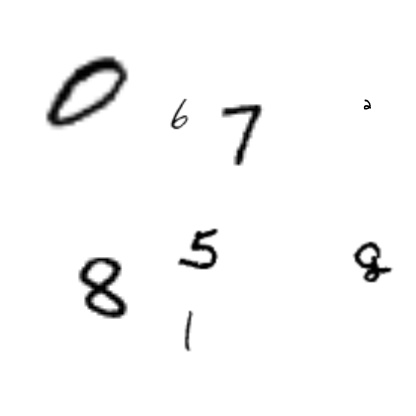 0 6 7 2
8 5 8
1